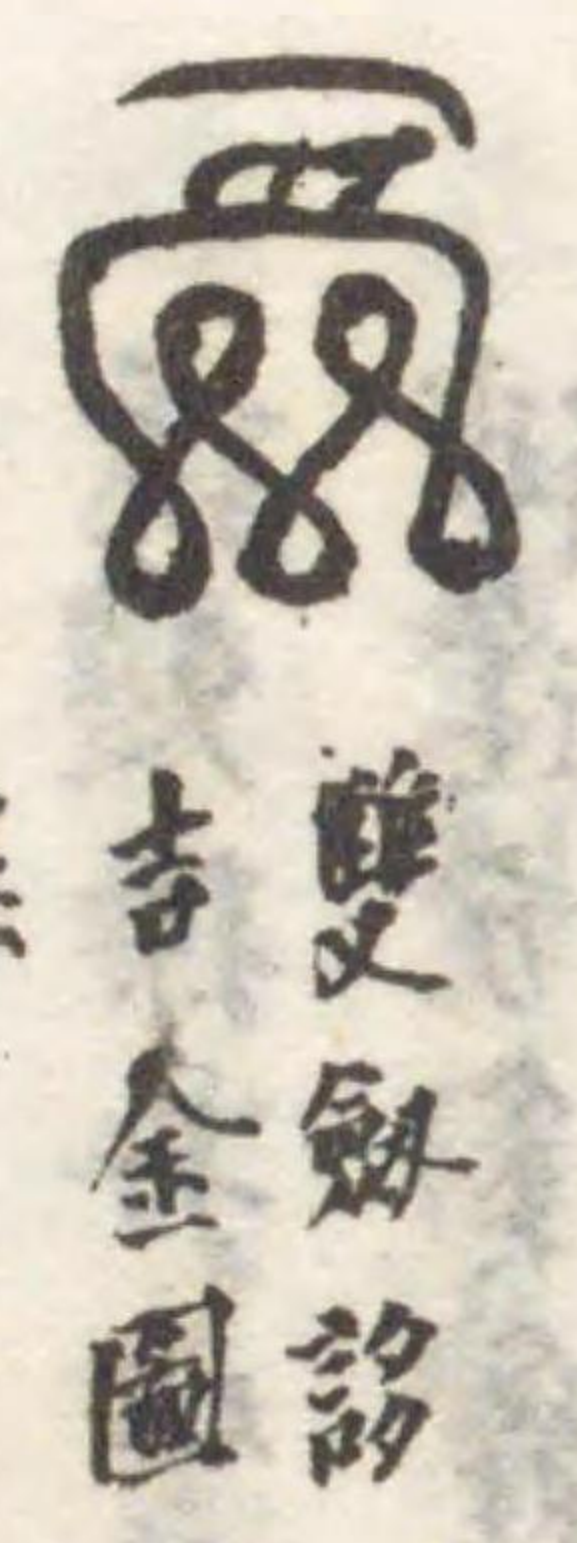 雙劔誃
吉金圖